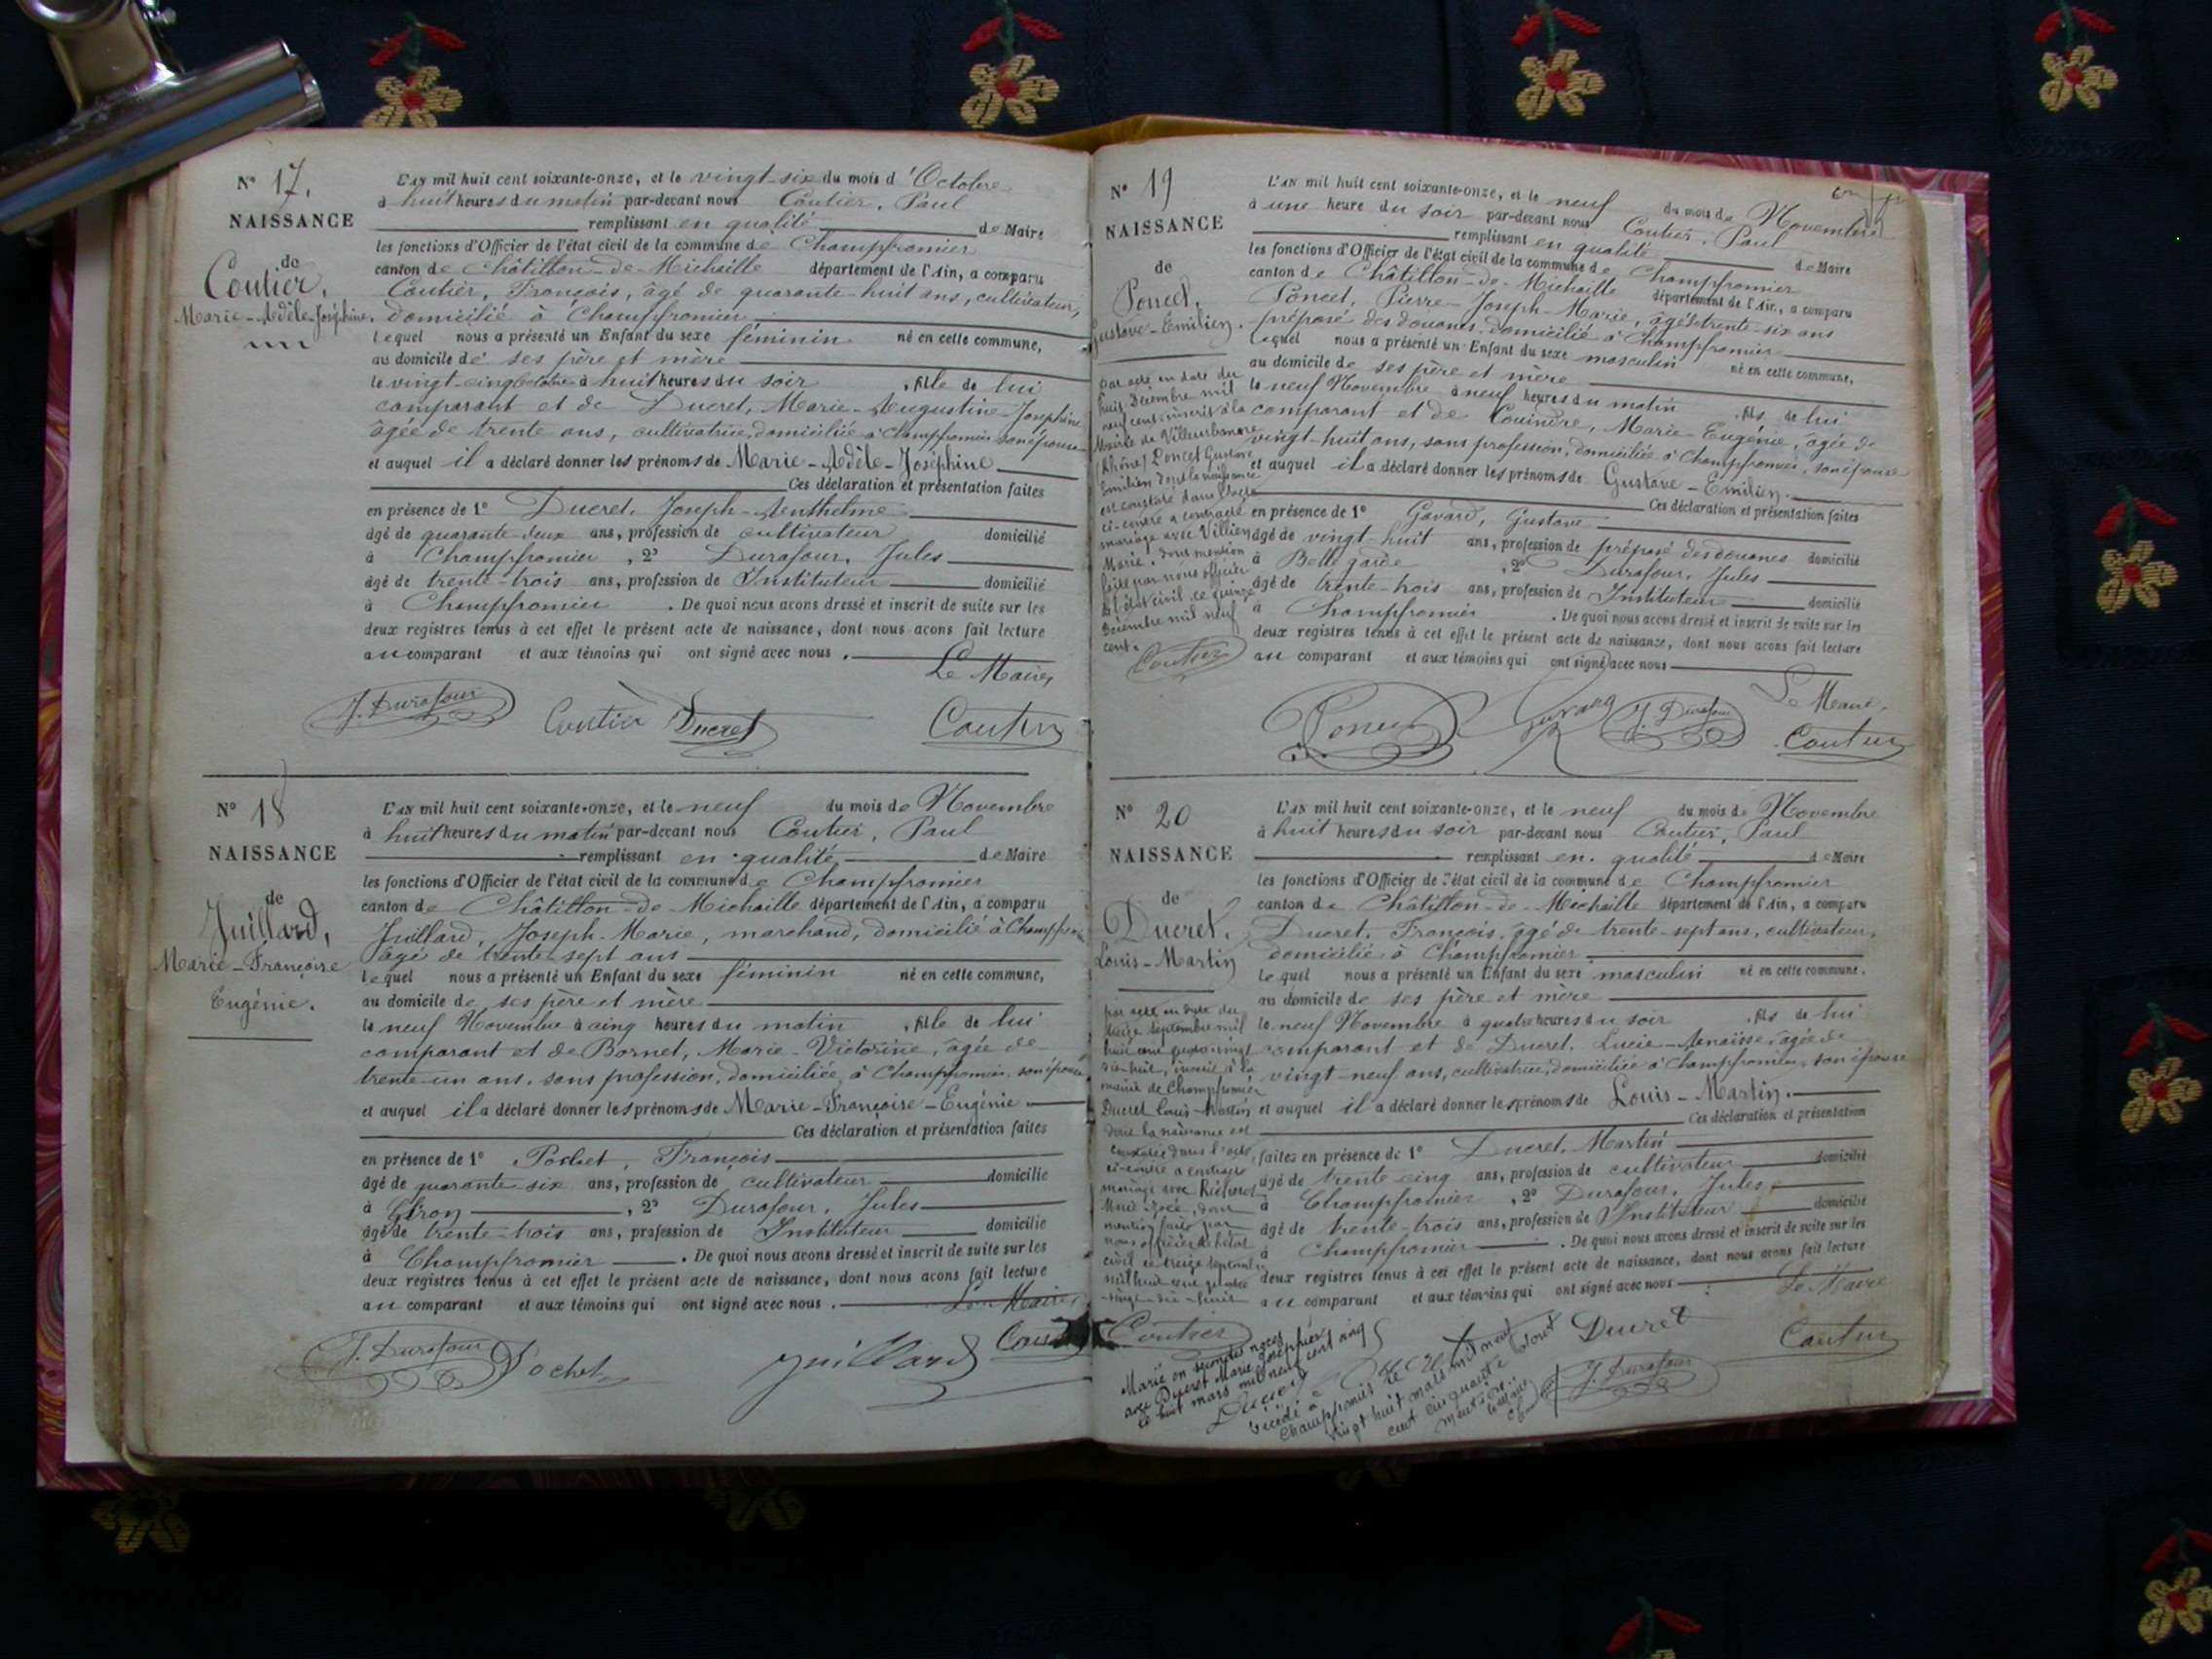 N° 17.
NAISSANCE
de
Coutier,
Marie-Adèle-Joséphine.
L'an mil huit cent soixante-onze, et le vingt-six du mois d'Octobre
à huit heures du matin par-devant nous Coutier, Paul
remplissant en qualité de Maire
les fonctions d'Officier de l'état civil de la commune de Champfromier
canton de Châtillon-de-Michaille département de l'Ain, a comparu
Coutier, François, âgé de quarante-huit ans, cultivateur,
domicilié à Champfromier
lequel nous a présenté un Enfant du sexe féminin né en cette commune,
au domicile de ses père et mère
le vingt-cinq Octobre à huit heures du soir , fille de lui
comparant et de Ducret, Marie-Augustine-Joséphine
âgée de trente ans, cultivatrice, domiciliée à Champfromier son épouse
et auquel il a déclaré donner les prénoms de Marie-Adèle-Joséphine
Ces déclaration et présentation faites
en présence de 1° Ducret, Joseph-Anthelme
âgé de quarante-deux ans, profession de cultivateur domicilié
à Champfromier , 2° Durafour, Jules
âgé de trente-trois ans, profession de Instituteur domicilié
à Champfromier . De quoi nous avons dressé et inscrit de suite sur les
deux registres tenus à cet effet le présent acte de naissance, dont nous avons fait lecture
au comparant et aux témoins qui ont signé avec nous .
Le Maire,
J. Durafour Coutier Ducret Coutier
N° 18
NAISSANCE
de
Juillard,
Marie-Françoise
Eugénie.
L'an mil huit cent soixante-onze, et le neuf du mois de Novembre
à huit heures du matin par-devant nous Coutier, Paul
remplissant en qualité de Maire
les fonctions d'Officier de l'état civil de la commune de Champfromier
canton de Châtillon-de-Michaille département de l'Ain, a comparu
Juillard, Joseph-Marie, marchand, domicilié à Champfromier
âgé de trente-sept ans
lequel nous a présenté un Enfant du sexe féminin né en cette commune,
au domicile de ses père et mère
le neuf Novembre à cinq heures du matin , fille de lui
comparant et de Bornet, Marie-Victorine, âgée de
trente-un ans, sans profession, domiciliée à Champfromier, son épouse
et auquel il a déclaré donner les prénoms de Marie-Françoise-Eugénie
Ces déclaration et présentation faites
en présence de 1° Pochet, François
âgé de quarante-six ans, profession de cultivateur domicilié
à Giron , 2° Durafour, Jules
âgé de trente-trois ans, profession de Instituteur domicilié
à Champfromier . De quoi nous avons dressé et inscrit de suite sur les
deux registres tenus à cet effet le présent acte de naissance, dont nous avons fait lecture
au comparant et aux témoins qui ont signé avec nous .
Le Maire,
J. Durafour Pochet Juillard Coutier
N° 19
NAISSANCE
de
Poncet,
Gustave-Emilien.
par acte en date du
huit Décembre mil
neuf cent, inscrit à la
Mairie de Villeurbanne
(Rhône) Poncet Gustave
Emilien dont la naissance
est constaté dans l'acte
ci-contre a contracté
mariage avec Villien
Marie. dont mention
faite par nous officier
de l'état civil ce quinze
Décembre mil neuf
cent.
Coutier
L'an mil huit cent soixante-onze, et le neuf du mois de Novembre
à une heure du soir par-devant nous Coutier, Paul
remplissant en qualité de Maire
les fonctions d'Officier de l'état civil de la commune de Champfromier
canton de Châtillon-de-Michaille département de l'Ain, a comparu
Poncet, Pierre-Joseph-Marie, âgé de trente-six ans
préposé des douanes, domicilié à Champfromier
lequel nous a présenté un Enfant du sexe masculin né en cette commune,
au domicile de ses père et mère
le neuf Novembre à neuf heures du matin , fils de lui
comparant et de Marie-Eugénie, âgée de
vingt-huit ans, sans profession, domiciliée à Champfromier, son épouse
et auquel il a déclaré donner les prénoms de Gustave-Emilien.
Ces déclaration et présentation faites
en présence de 1° Gavard, Gustave
âgé de vingt-huit ans, profession de préposé des douanes domicilié
à Bellegarde , 2° Durafour, Jules
âgé de trente-trois ans, profession de Instituteur domicilié
à Champfromier . De quoi nous avons dressé et inscrit de suite sur les
deux registres tenus à cet effet le présent acte de naissance, dont nous avons fait lecture
au comparant et aux témoins qui ont signé avec nous
Le Maire,
Poncet Gavard J. Durafour Coutier
N° 20
NAISSANCE
de
Ducret,
Louis-Martin
par acte en date du
treize Septembre mil
huit cent quatre-vingt
dix-huit, inscrit à la
mairie de Champfromier
Ducret Louis-Martin
dont la naissance est
constatée dans l'acte
ci-contre a contracté
mariage avec
dont
mention faite par
nous officier de l'état
civil ce treize Septembre
mil huit cent quatre
-vingt-dix-huit
Coutier
L'an mil huit cent soixante-onze, et le neuf du mois de Novembre
à huit heures du soir par-devant nous Coutier, Paul
remplissant en qualité de Maire
les fonctions d'Officier de l'état civil de la commune de Champfromier
canton de Châtillon-de-Michaille département de l'Ain, a comparu
Ducret, François, âgé de trente-sept ans, cultivateur,
domicilié à Champfromier
lequel nous a présenté un Enfant du sexe masculin né en cette commune,
au domicile de ses père et mère
le neuf Novembre à quatre heures du soir , fils de lui
comparant et de Ducret, Lucie-Anaïsse, âgée de
vingt-neuf ans, cultivatrice, domiciliée à Champfromier, son épouse
et auquel il a déclaré donner les prénoms de Louis-Martin.
Ces déclaration et présentation
faites en présence de 1° Ducret, Martin
âgé de trente-cinq ans, profession de cultivateur domicilié
à Champfromier , 2° Durafour, Jules
âgé de trente-trois ans, profession de Instituteur domicilié
à Champfromier . De quoi nous avons dressé et inscrit de suite sur les
deux registres tenus à cet effet le présent acte de naissance, dont nous avons fait lecture
au comparant et aux témoins qui ont signé avec nous
Le Maire
Ducret Ducret J. Durafour Coutier
Marié en secondes noces
avec Ducret Marie Joséphine
le huit mars mil neuf cent cinq
Décédé à
Champfromier le
vingt huit mars mil neuf
cent cinquante